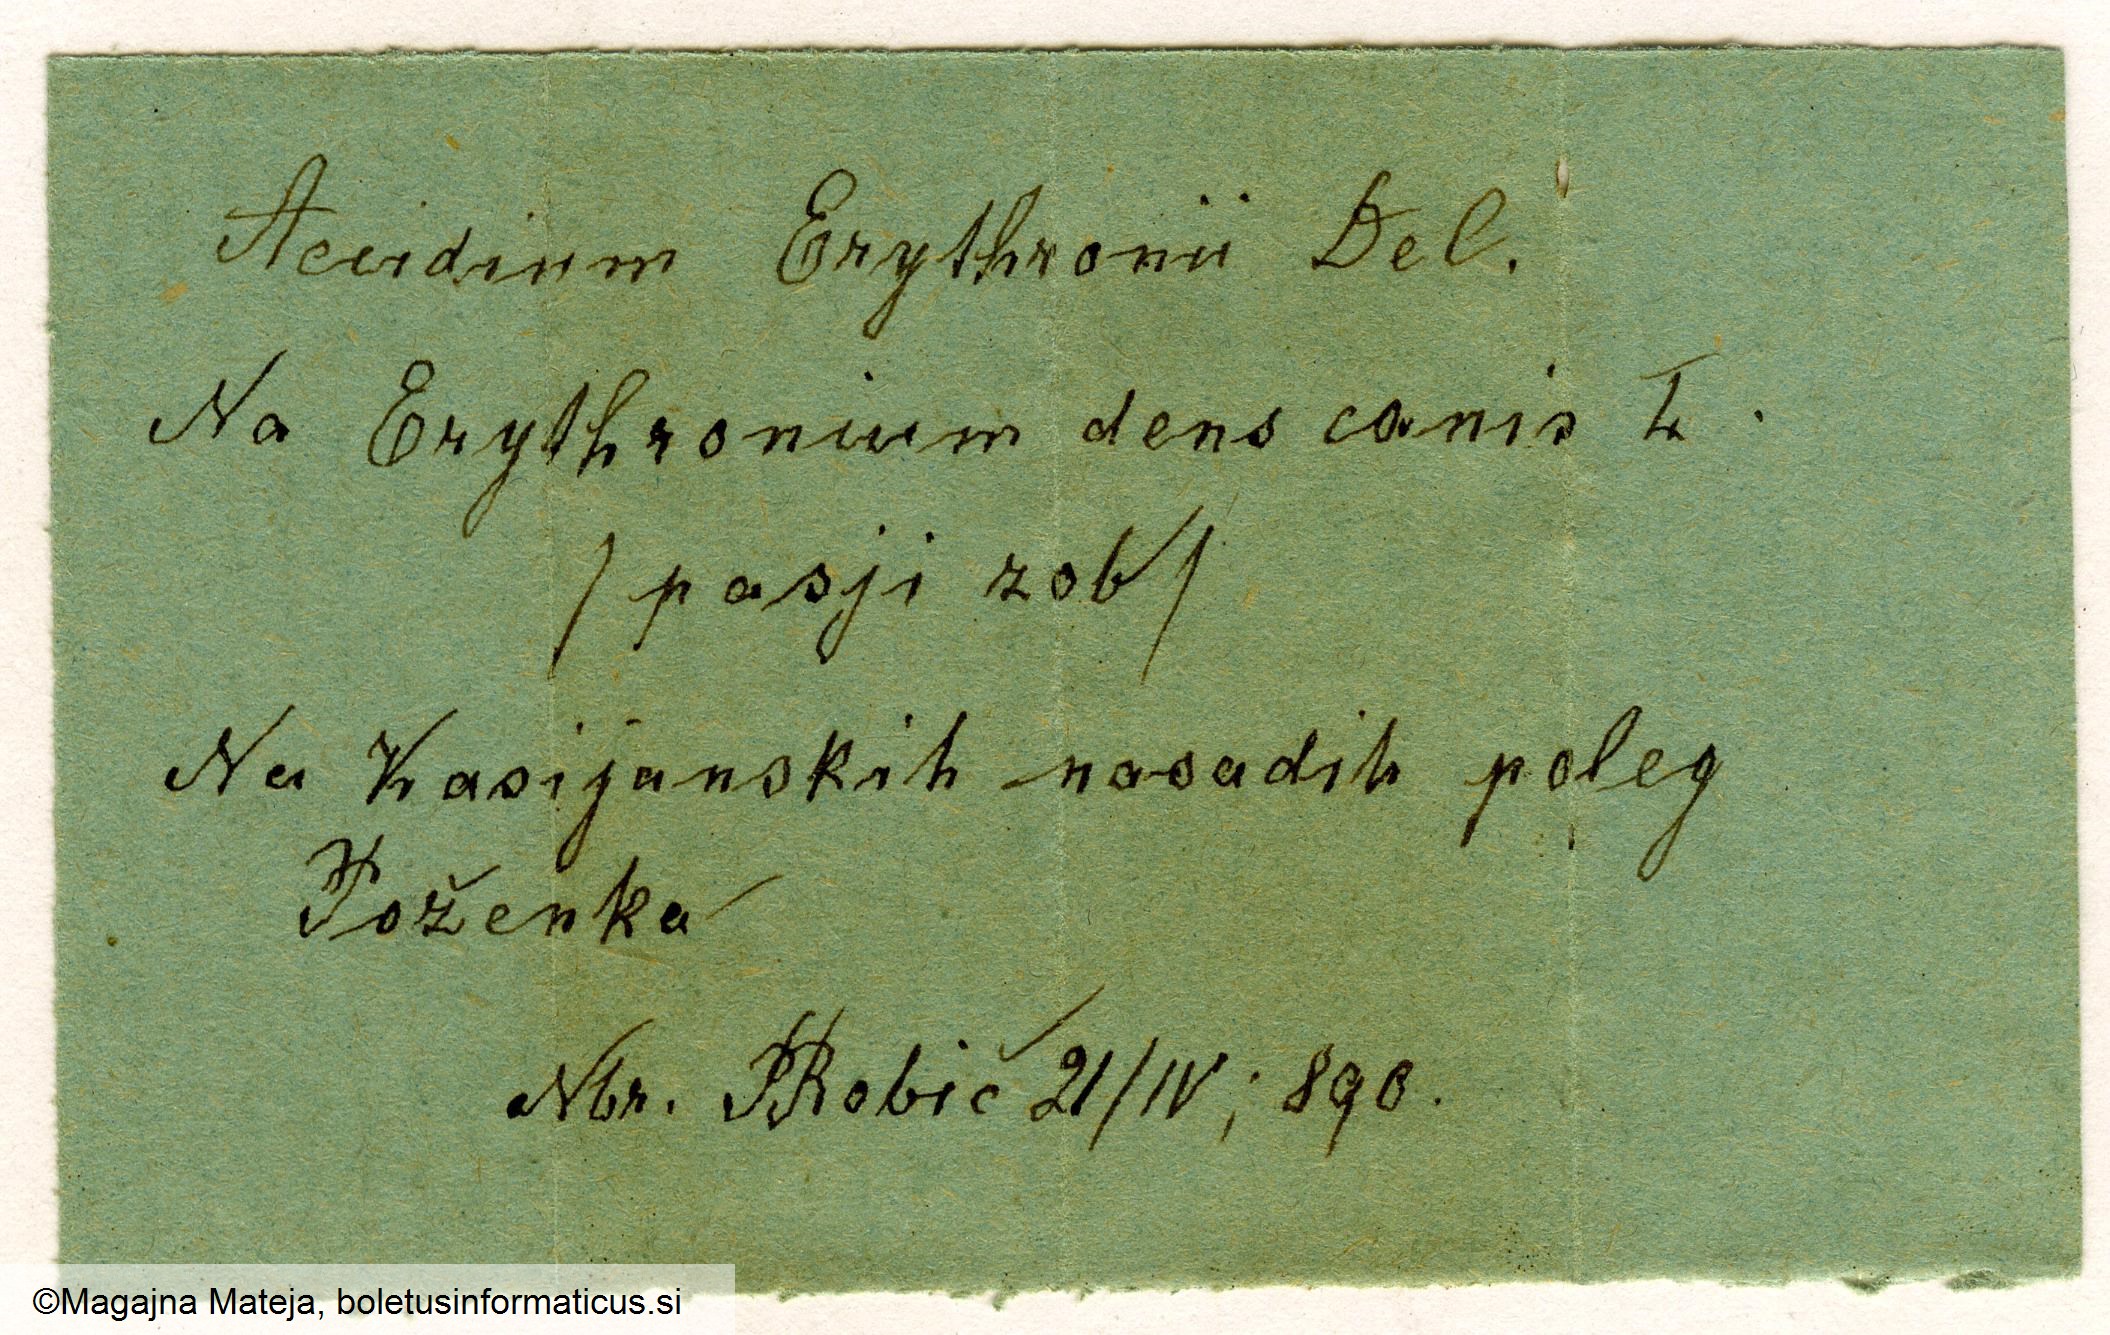 Aecidium Erythronii DeC.
Na Erythronium dens canis L.
/pasji zob/
Na Kasijanskih nasadih poleg
Poženka
Nbr. SRobič 21/IV; 890.
©Magajna Mateja, boletusinformaticus.si